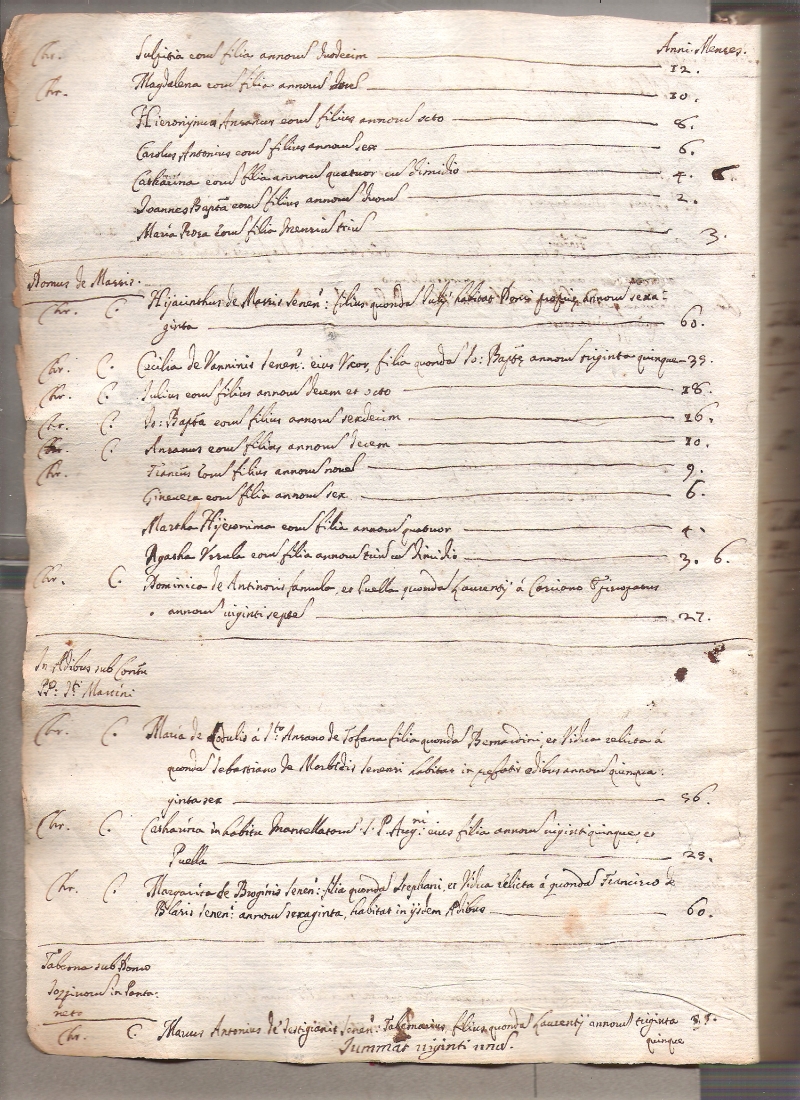 Anni. Menses.
Chr. Sulpitia eorum filia annorum duodecim 12.
Chr. Magdalena eorum filia annorum 10.
Hieronymus Ansanus eorum filius annorum octo 8.
Carolus Antonius eorum filius annorum sex 6.
Catharina eorum filia annorum quatuor cum dimidio 4. 6
Joannes Bapta eorum filius annorum duorum 2.
Maria Rosa eorum filia mensium trium 3.
Domus de Massis.
Chr. C. Hijacinthus de Massis Senen: filius quondam Julij habitat annorum sexa-
ginta 60.
Chr. C. Cecilia de Vanninis Senen: eius Uxor, filia quondam Jo: Baptę annorum triginta quinque 35.
Chr. C. Julius eorum filius annorum decem et octo 18.
Chr. C. Jo: Bapta eorum filius annorum sexdecim 16.
Chr. C. Ansanus eorum filius annorum decem 10.
Chr. Francus eorum filius annorum novem 9.
Ginevera eorum filia annorum sex 6.
Martha Hijeronima eorum filia annorum quatuor 4.
Agatha Ursula eorum filia annorum trium cum dimidio 3. 6.
Chr. C. Dominica de Antinoris famula, et Puella quondam Laurentij à
annorum viginti septem 27.
In Ædibus sub
PP. Sti Martini
Chr. C. Maria de à Sto Ansano de Tofana filia quondam Bernardini, et Vidua relicta à
quondam Sebastiano de Morbidis Senensi habitat in ędibus annorum quinqua-
ginta sex 56.
Chr. C. Catharina in habitu Mantellatorum S. P. Augni eius filia annorum viginti quinque, et
Puella 25.
Chr. C. Margarita de Broginis Senen: filia quondam Stephani, et Vidua relicta à quondam Francisco de
Blasis Senen: annorum sexaginta, habitat in ijsdem Ædibus 60.
Taberna sub Domo
in Panta-
neto
Chr. C. Marcus Antonius de Senen: Tabernarius filius quondam Laurentij annorum triginta 35.
quinque
Summat viginti una.